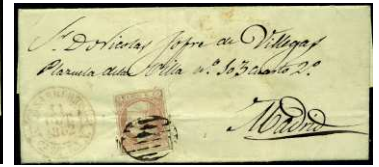 Sr. D. Nicolas Jofre de Villegas
Plazuela de la Villa nº 103 cuarto 2º
Madrid